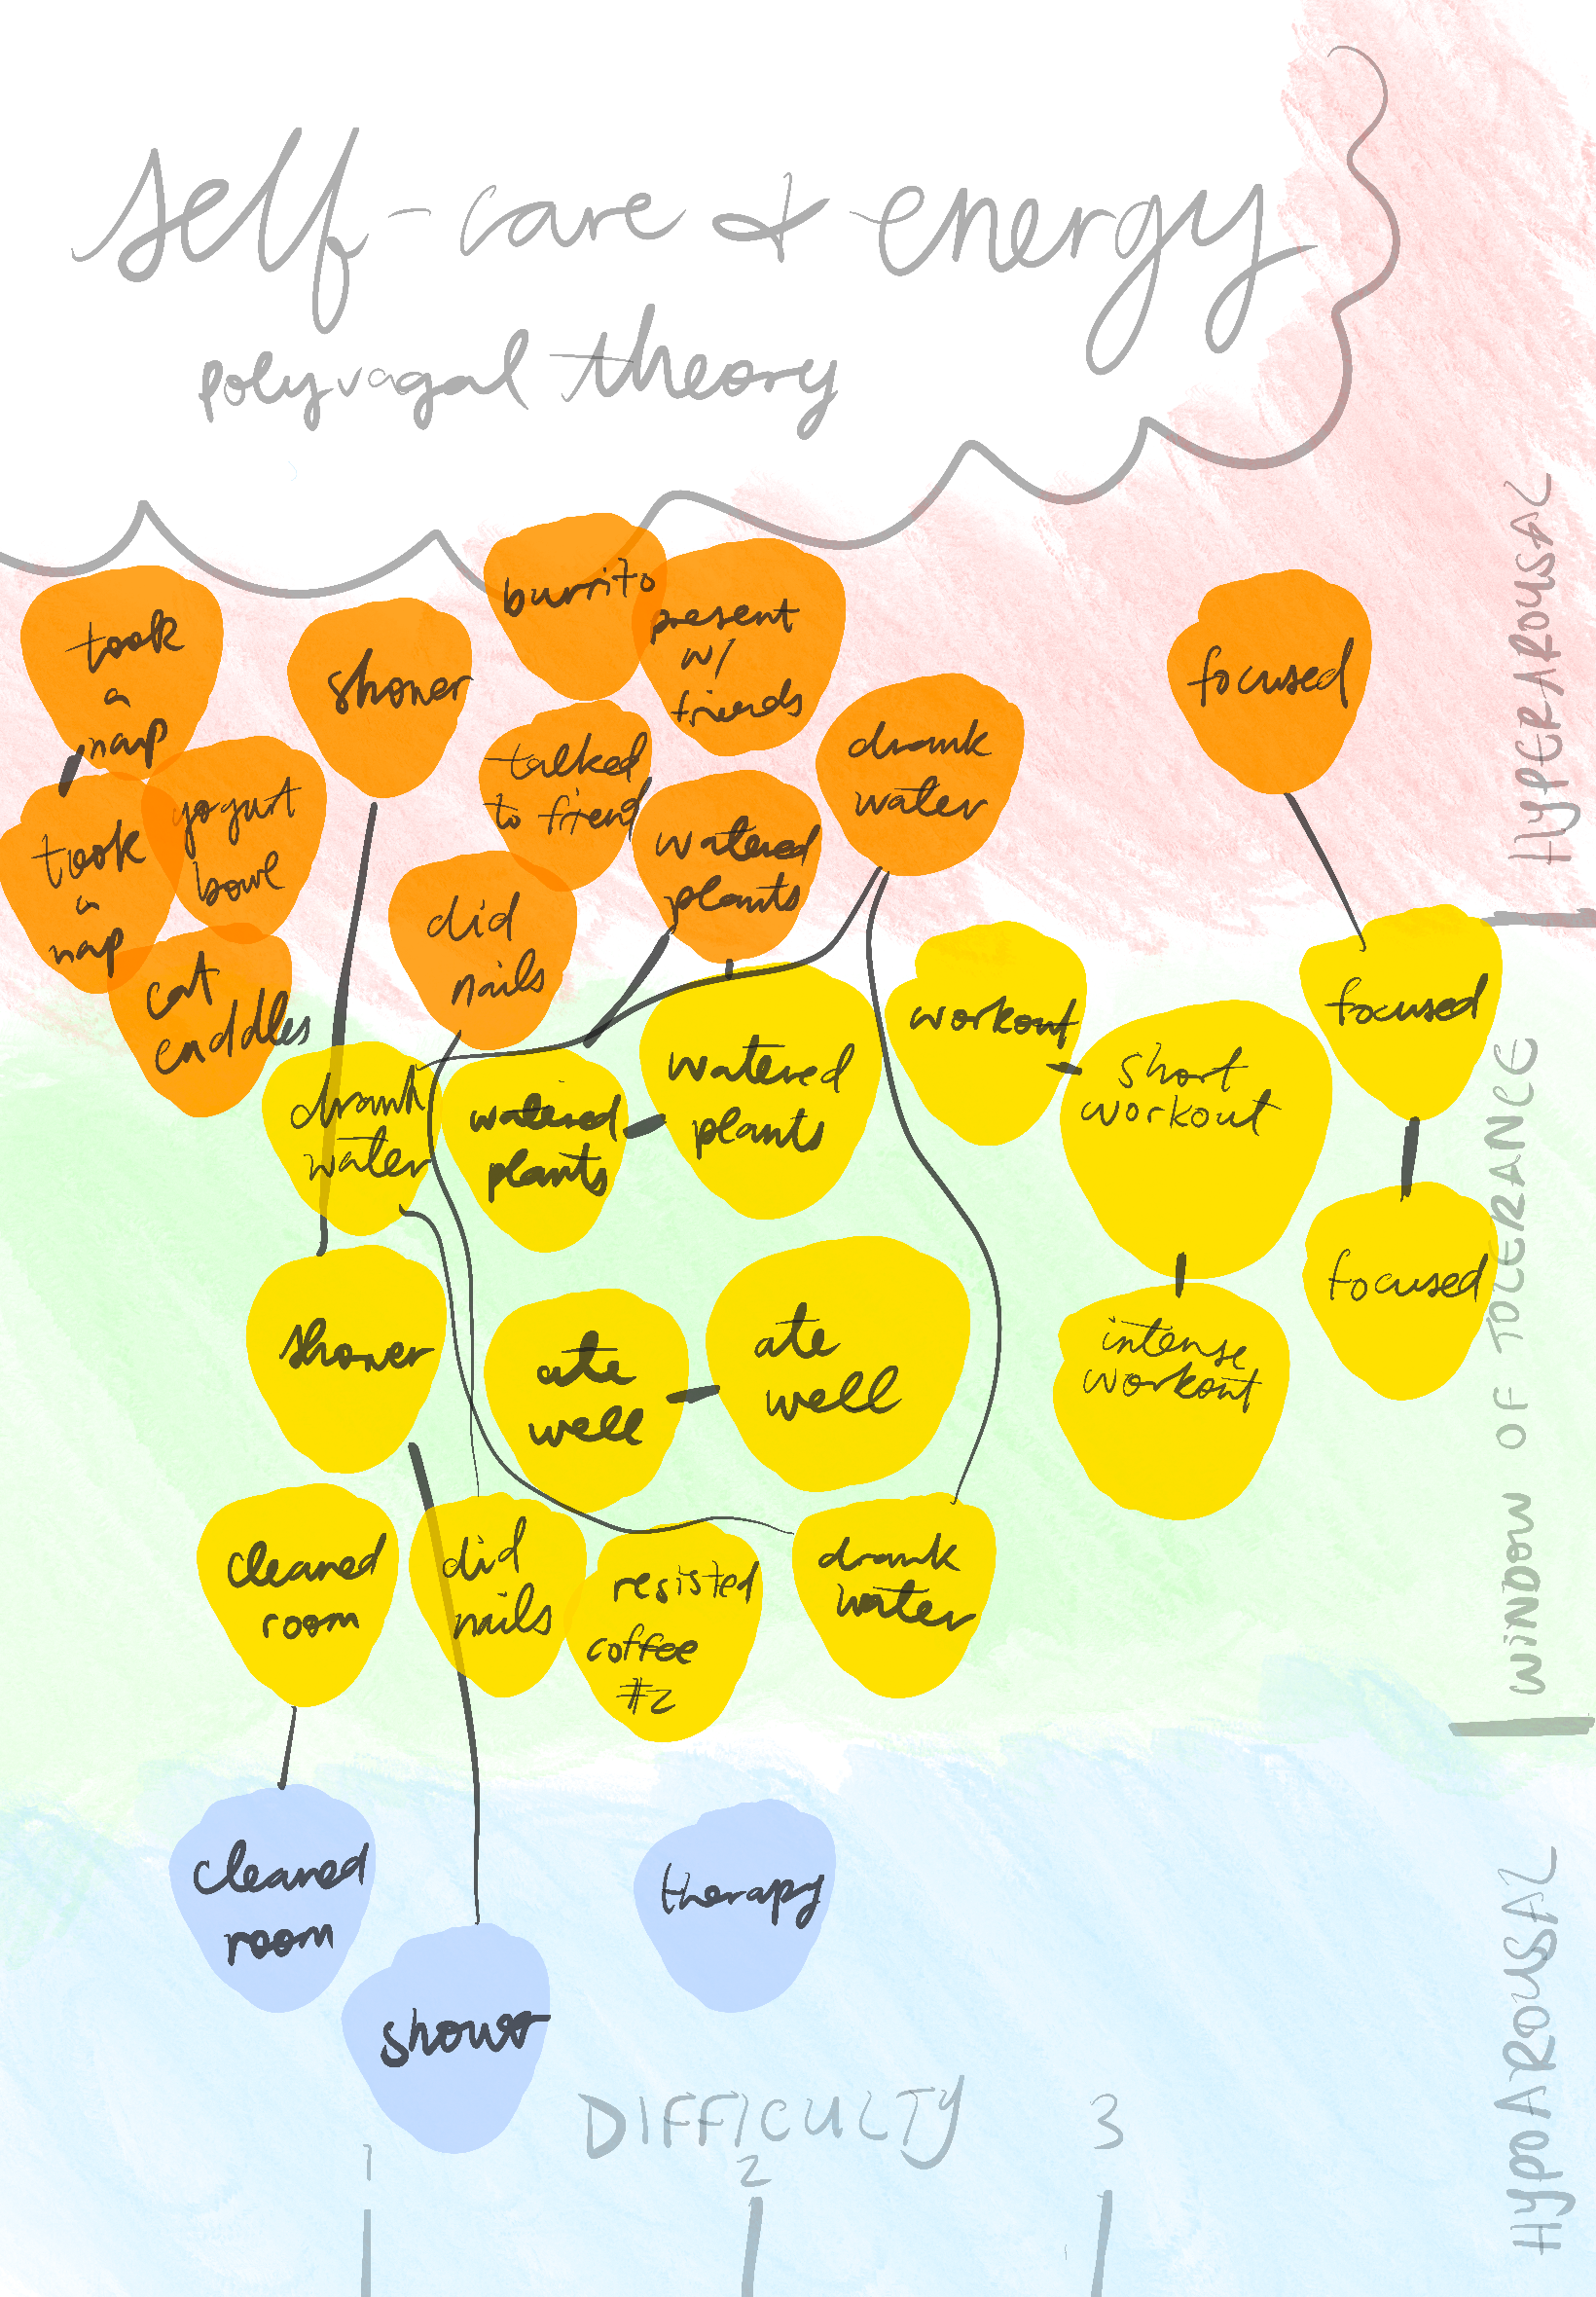 self-care & energy
polyvagal theory
took
a
nap
shower
burrito
present
w/
friends
focused
talked
to friend
drank
water
took
a
nap
yogurt
bowl
watered
plants
did
nails
cat
cuddles
HYPERAROUSAL
workout
focused
drank
water
watered
plants
watered
plants
short
workout
shower
ate
well
ate
well
intense
workout
focused
WINDOW OF TOLERANCE
cleaned
room
did
nails
resisted
coffee
#2
drank
water
cleaned
room
therapy
shower
HYPOAROUSAL
DIFFICULTY
1
2
3